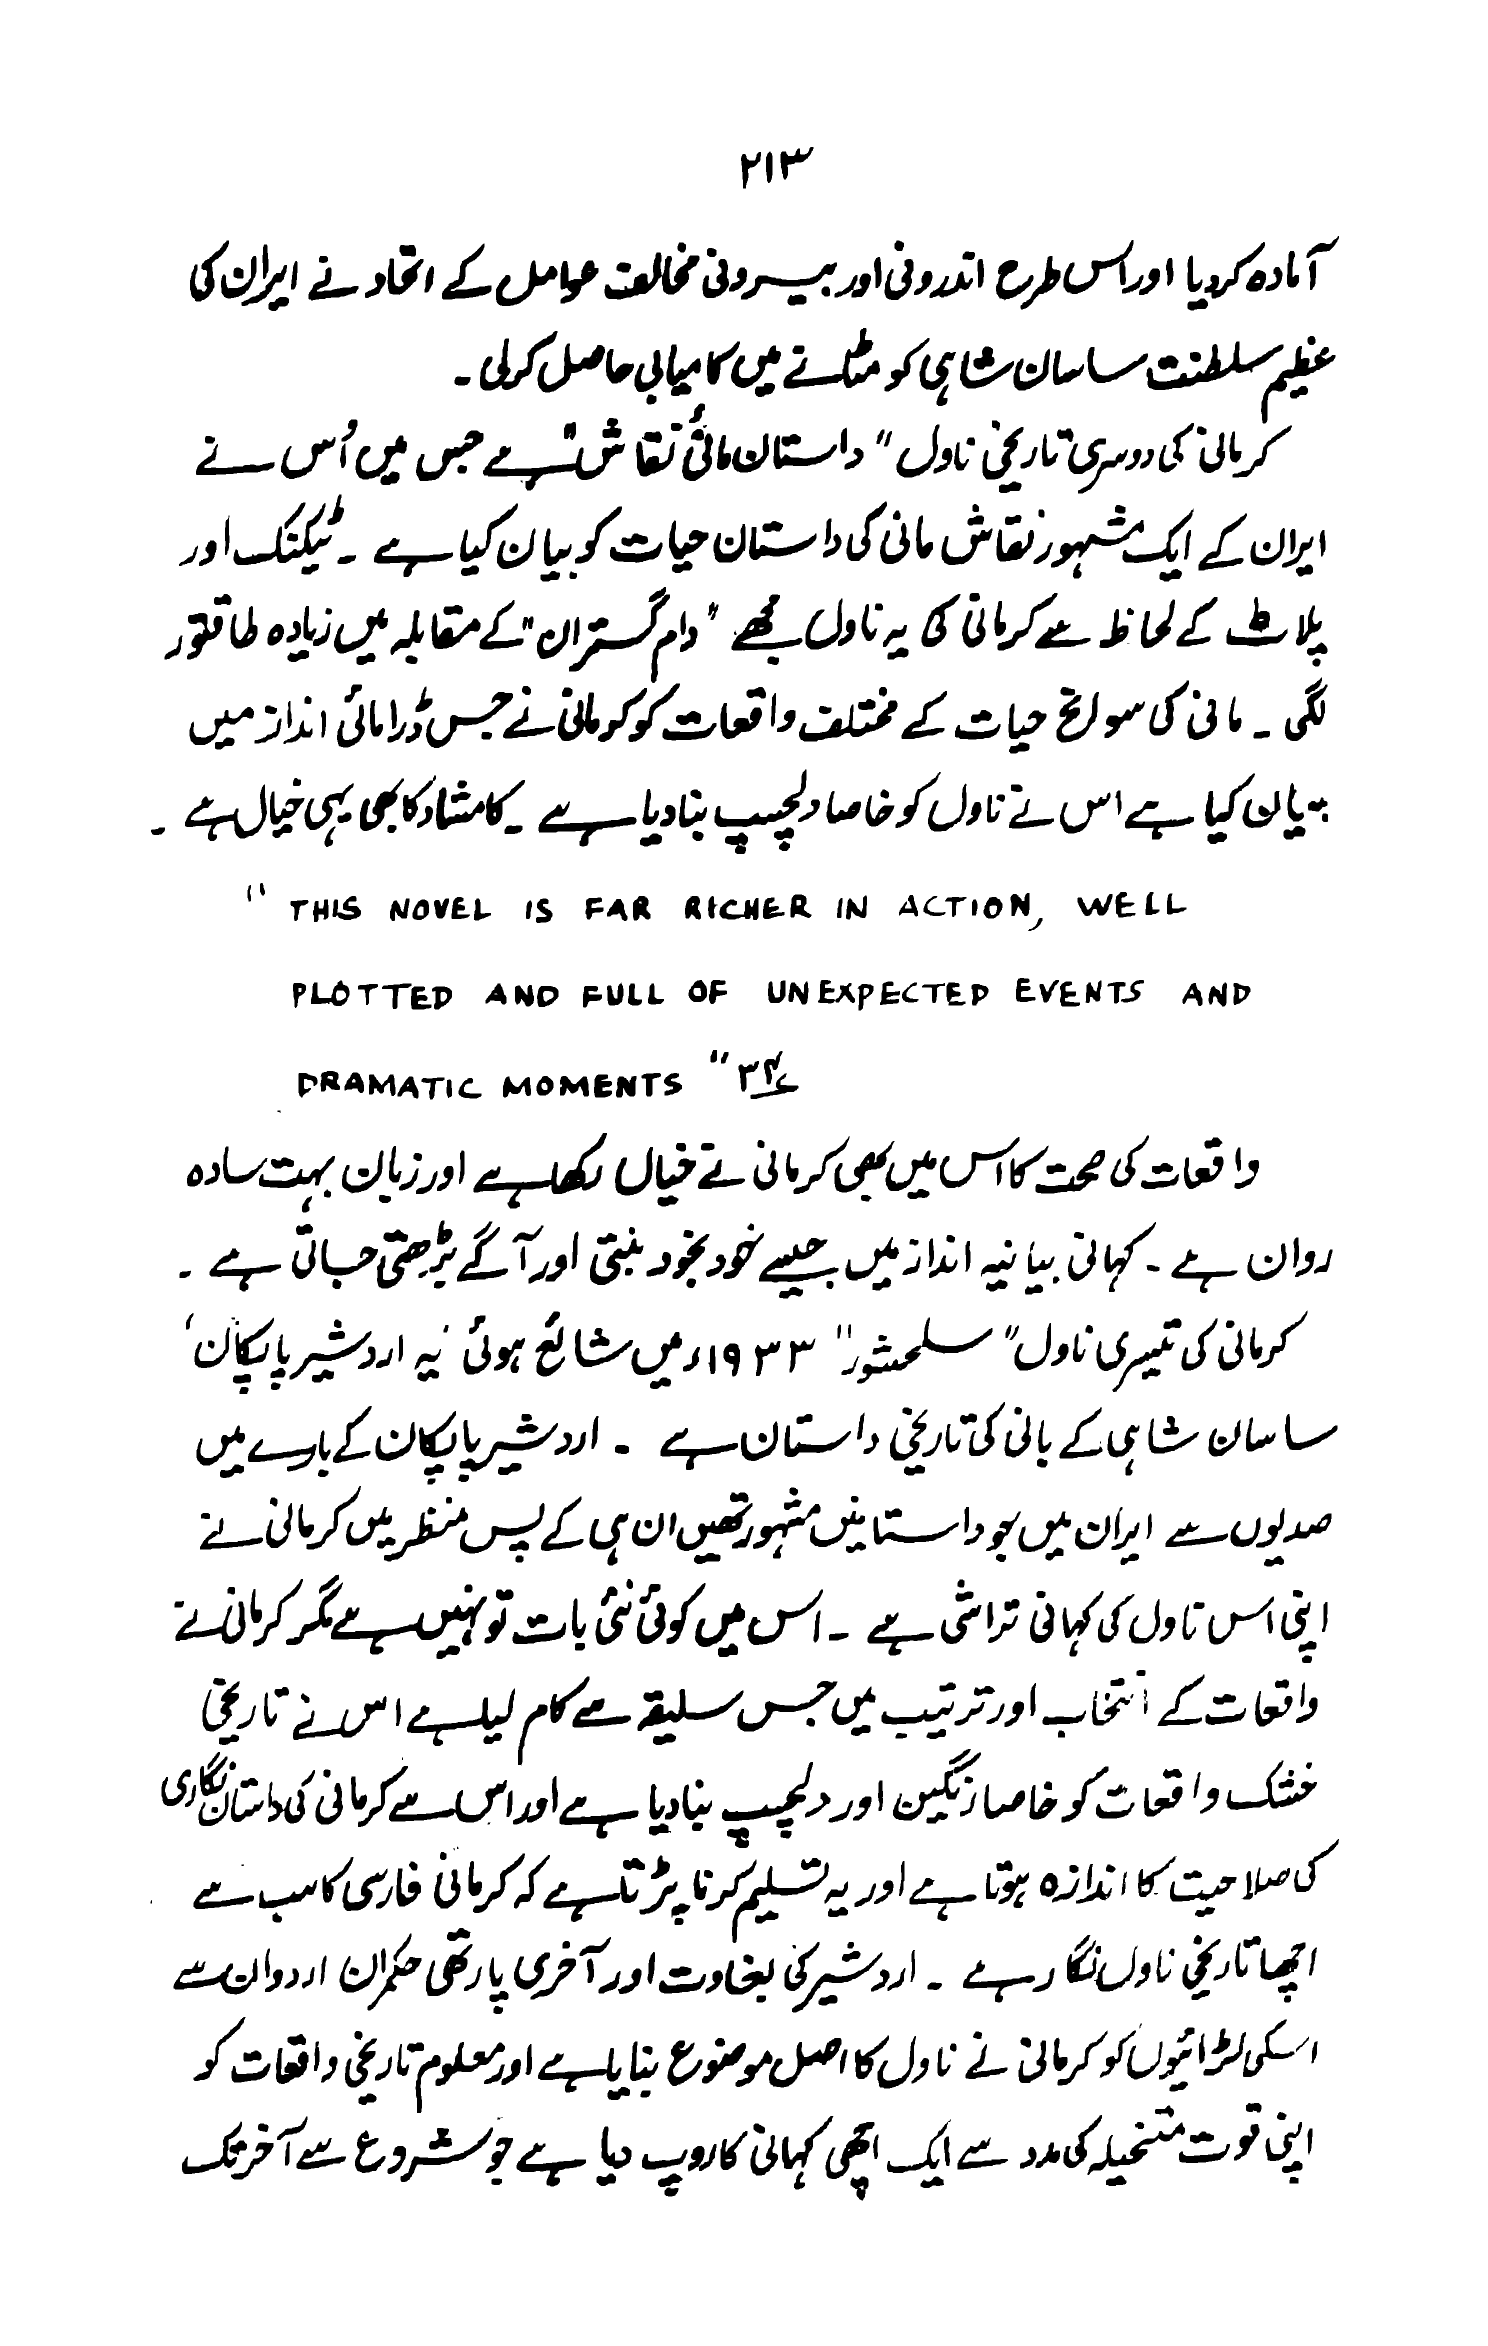 ۲۱۳
آمادہ کردیا اور اس طرح اندرونی اور بیرونی مخالف عوامل کے اتحاد نے ایران کی
عظیم سلطنت ساسان شاہی کو مٹانے میں کامیابی حاصل کرلی۔
کرمانی کی دوسری تاریخی ناول "داستان مانئ نقاش" ہے جس میں اُس نے
ایران کے ایک مشہور نقاش مانی کی داستان حیات کو بیان کیا ہے ۔ ٹیکنک اور
پلاٹ کے لحاظ سے کرمانی کی یہ ناول مجھے "دام گستران" کے مقابلہ میں زیادہ طاقتور
لگی ۔ مانی کی سوانح حیات کے مختلف واقعات کو کرمانی نے جس ڈرامائی انداز میں
بیان کیا ہے اس نے ناول کو خاصا دلچسپ بنادیا ہے ۔ کامشاد کا بھی یہی خیال ہے ۔
" THIS NOVEL IS FAR RICHER IN ACTION, WELL
PLOTTED AND FULL OF UNEXPECTED EVENTS AND
DRAMATIC MOMENTS " ۳۴؎
واقعات کی صحت کا اس میں بھی کرمانی نے خیال رکھا ہے اور زبان بہت سادہ
روان ہے ۔ کہانی بیانیہ انداز میں جیسے خود بخود بنتی اور آگے بڑھتی جاتی ہے ۔
کرمانی کی تیسری ناول "سلحشور" ۱۹۳۳ء میں شائع ہوئی یہ اردشیر پاپکان،
ساسان شاہی کے بانی کی تاریخی داستان ہے ۔ اردشیر پاپکان کے بارے میں
صدیوں سے ایران میں جو داستانیں مشہور تھیں ان ہی کے پس منظر میں کرمانی نے
اپنی اس ناول کی کہانی تراشی ہے ۔ اس میں کوئی نئی بات تو نہیں ہے مگر کرمانی نے
واقعات کے انتخاب اور ترتیب میں جس سلیقہ سے کام لیا ہے اس نے تاریخی
خشک واقعات کو خاصا رنگین اور دلچسپ بنادیا ہے اور اس سے کرمانی کی داستان نگاری
کی صلاحیت کا اندازہ ہوتا ہے اور یہ تسلیم کرنا پڑتا ہے کہ کرمانی فارسی کا سب سے
اچھا تاریخی ناول نگار ہے ۔ اردشیر کی بغاوت اور آخری پارتھی حکمران اردوان سے
اسکی لڑائیوں کو کرمانی نے ناول کا اصل موضوع بنایا ہے اور معلوم تاریخی واقعات کو
اپنی قوت متخیلہ کی مدد سے ایک اچھی کہانی کا روپ دیا ہے جو شروع سے آخر تک